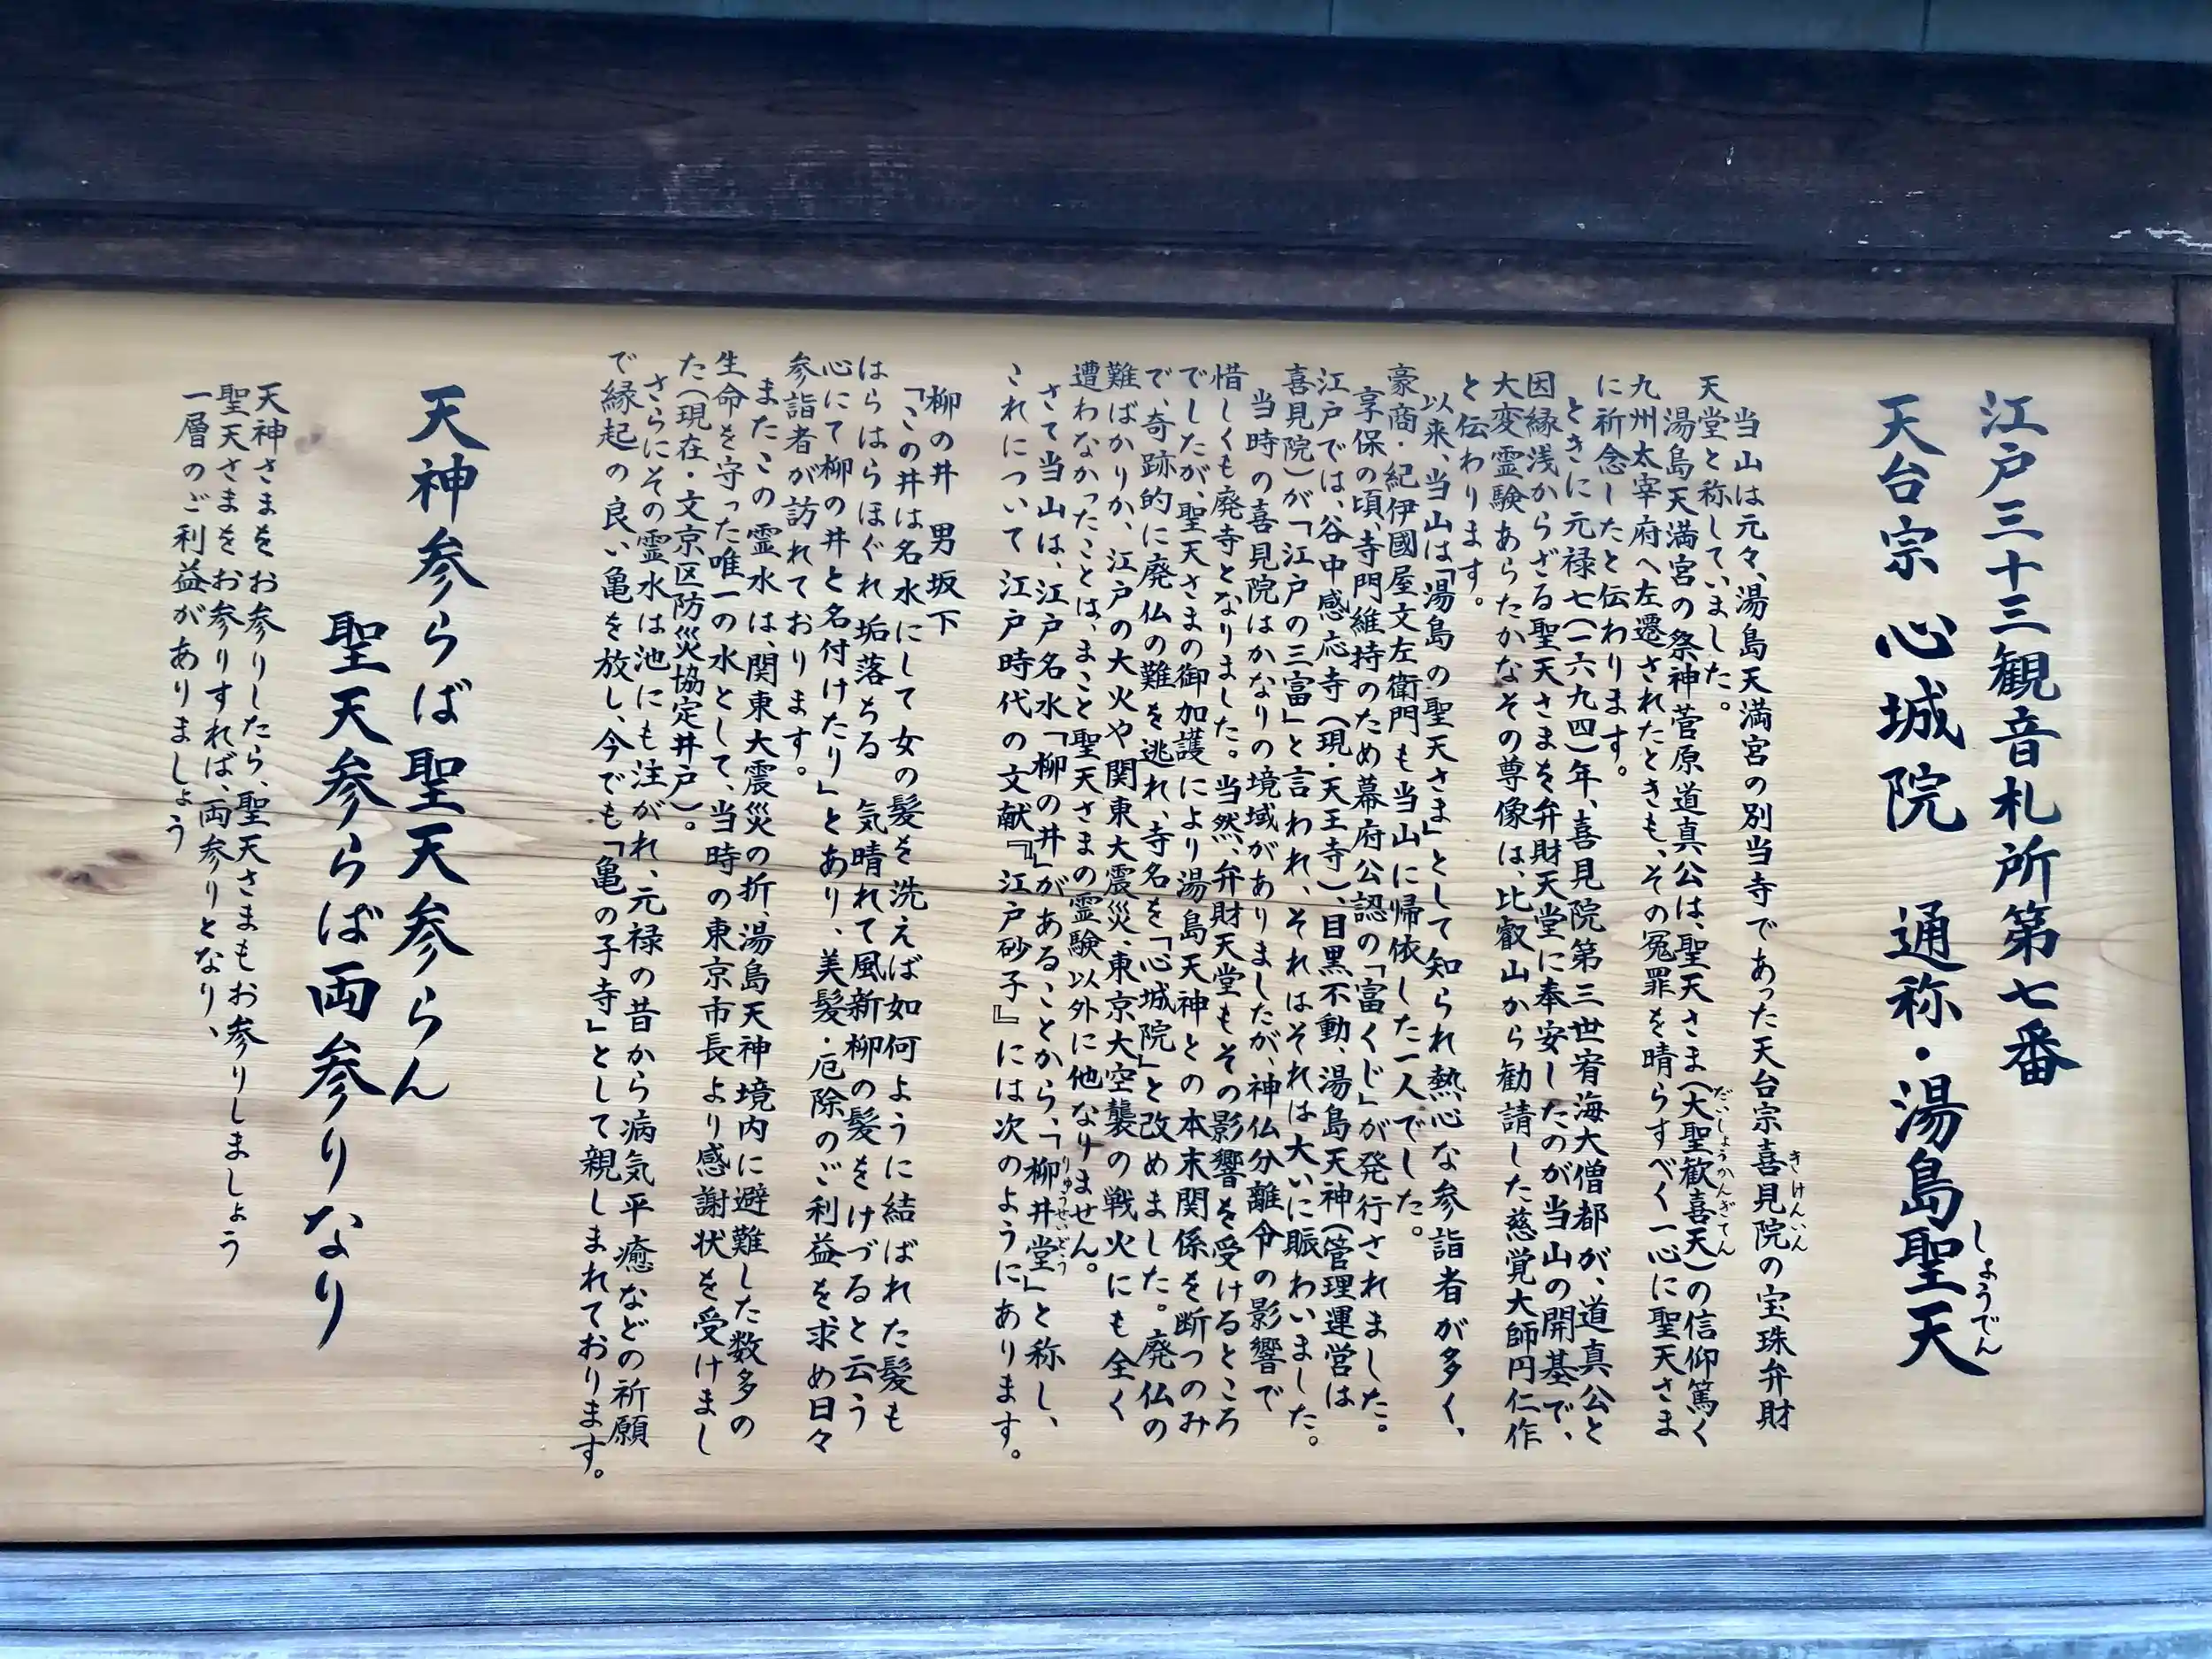 江戸三十三観音札所第七番
天台宗 心城院 通称・湯島聖天
しょうでん
当山は元々、湯島天満宮の別当寺であった天台宗喜見院の宝珠弁財
きけんいん
天堂と称していました。
湯島天満宮の祭神菅原道真公は、聖天さま(大聖歓喜天)の信仰篤く
だいしょうかんぎてん
九州太宰府へ左遷されたときも、その冤罪を晴らすべく一心に聖天さま
に祈念したと伝わります。
ときに元禄七(一六九四)年、喜見院第三世宥海大僧都が、道真公と
因縁浅からざる聖天さまを弁財天堂に奉安したのが当山の開基で、
大変霊験あらたかなその尊像は、比叡山から勧請した慈覚大師円仁作
と伝わります。
以来、当山は「湯島の聖天さま」として知られ熱心な参詣者が多く、
豪商・紀伊國屋文左衛門も当山に帰依した一人でした。
享保の頃、寺門維持のため幕府公認の「富くじ」が発行されました。
江戸では、谷中感応寺(現・天王寺)、目黒不動、湯島天神(管理運営は
喜見院)が「江戸の三富」と言われ、それはそれは大いに賑わいました。
当時の喜見院はかなりの境域がありましたが、神仏分離令の影響で
惜しくも廃寺となりました。当然、弁財天堂もその影響を受けるところ
でしたが、聖天さまの御加護により湯島天神との本末関係を断つのみ
で、奇跡的に廃仏の難を逃れ、寺名を「心城院」と改めました。廃仏の
難ばかりか、江戸の大火や関東大震災、東京大空襲の戦火にも全く
遭わなかったことは、まこと聖天さまの霊験以外に他なりません。
さて当山は、江戸名水「柳の井」があることから、「柳井堂」と称し、
りゅうせいどう
これについて江戸時代の文献『江戸砂子』には次のようにあります。
柳の井 男坂下
「この井は名水にして女の髪を洗えば如何ように結ばれた髪も
はらはらほぐれ垢落ちる 気晴れて風新柳の髪をけづると云う
心にて柳の井と名付けたり」とあり、美髪・厄除のご利益を求め日々
参詣者が訪れております。
またこの霊水は、関東大震災の折、湯島天神境内に避難した数多の
生命を守った唯一の水として、当時の東京市長より感謝状を受けまし
た(現在・文京区防災協定井戸)。
さらにその霊水は池にも注がれ、元禄の昔から病気平癒などの祈願
で縁起の良い亀を放し、今でも「亀の子寺」として親しまれております。
天神参らば聖天参らん
聖天参らば両参りなり
天神さまをお参りしたら、聖天さまもお参りしましょう
聖天さまをお参りすれば、両参りとなり、
一層のご利益がありましょう